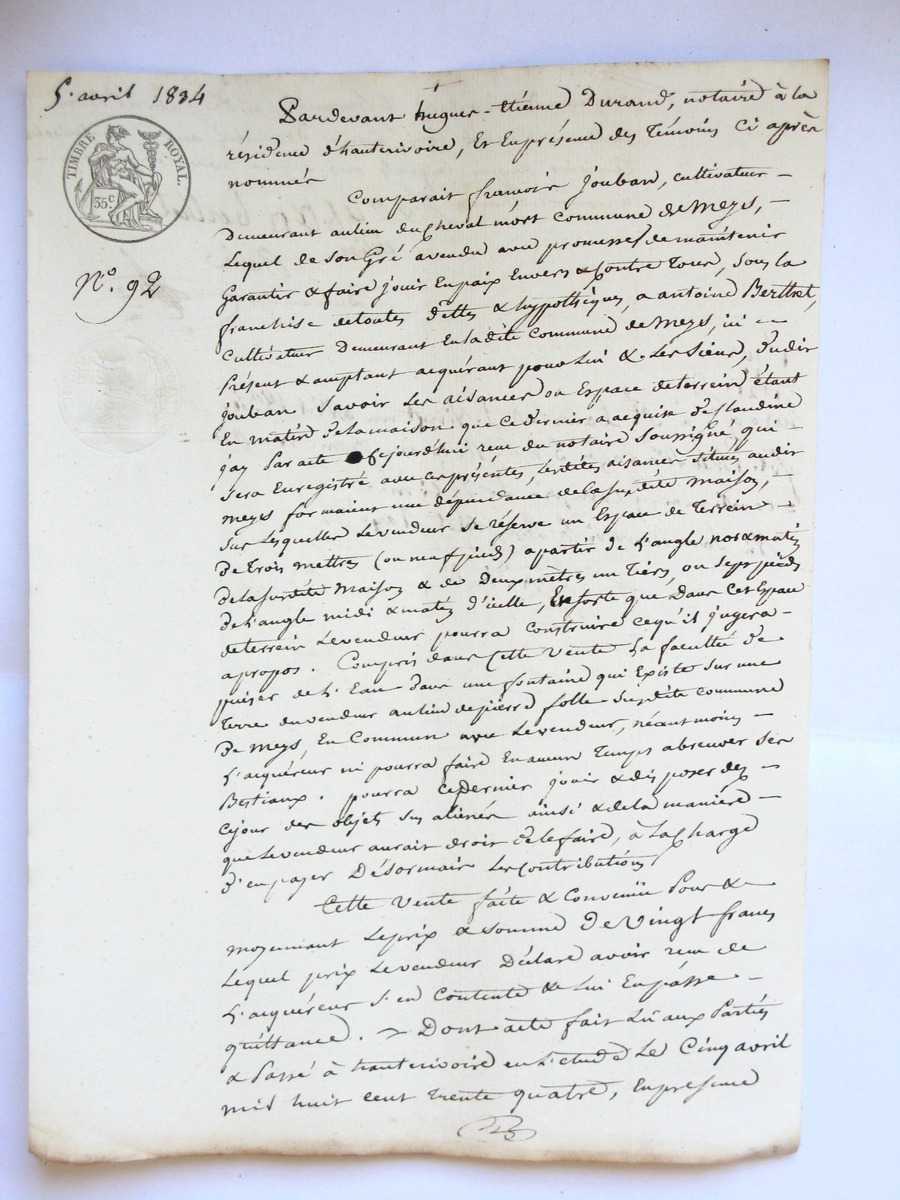 5. avril 1834
TIMBRE ROYAL.
35 c
N.° 92
Pardevant hugues-Etienne Durand, notaire à la
résidence d'hauterivoire, Et En présence des Témoins Ci après
nommés
Comparait francois jouban, cultivateur –
Demeurant au lieu du Cheval mort Commune de Meys, –
Lequel de son Gré a vendu avec promesses de maintenir
Garantir & faire jouir En paix Envers & Contre Tous, sous la
franchise de toutes dettes & hypothèques, a antoine Berthet,
Cultivateur Demeurant En la dite Commune de Meys, ici –
Présent & acceptant acquérant pour Lui & Les Siens, dudit
jouban Savoir Les aisances ou Espace de terrein étant
En matin de la maison que ce dernier a acquise de Claudine
jay Par acte de cejourd'hui reçu du notaire Soussigné, qui
Sera Enregistré avec ces présentes, les dites aisances situées audit
meys formaient une dépendance de la susdite Maison, –
Sur Lesquelles Le vendeur Se réserve un Espace de Terrein –
De Trois mettres (ou neuf pieds) a partir de L'angle nord & matin
de la susdite Maison & de Deux mètres un Tiers ou Sept pieds
de L'angle midi & matin d'icelle, En sorte que dans Cet Espace
de terrein Le vendeur pourra Construire ce qu'il jugera –
apropos. Compris dans Cette Vente La faculté de
puiser de L'Eau dans une fontaine qui Existe Sur une
Terre du vendeur au lieu de pierre folle susdite commune
De Meys, En Commun avec Le vendeur, néant moins –
L'acquéreur ni pourra faire En aucun Temps abreuver Ses
Bestiaux. pourra ce dernier jouir & disposer dez –
Cejour des objets Sus aliénés ainsi & de la manière –
que Le vendeur aurait droit de le faire, à La Charge
d'en payer Désormais Les Contributions
Cette Vente faite & Convenüe Pour &
moyennant Le prix & Somme De Vingt francs
Lequel prix Le vendeur Déclare avoir reçu de
L'acquéreur S'en Contente & Lui En passe –
quittance. – Dont acte fait Lû aux Parties
& Passé à hauterivoire en L'etude Le Cinq avril
mil huit cent Trente quatre, En présence